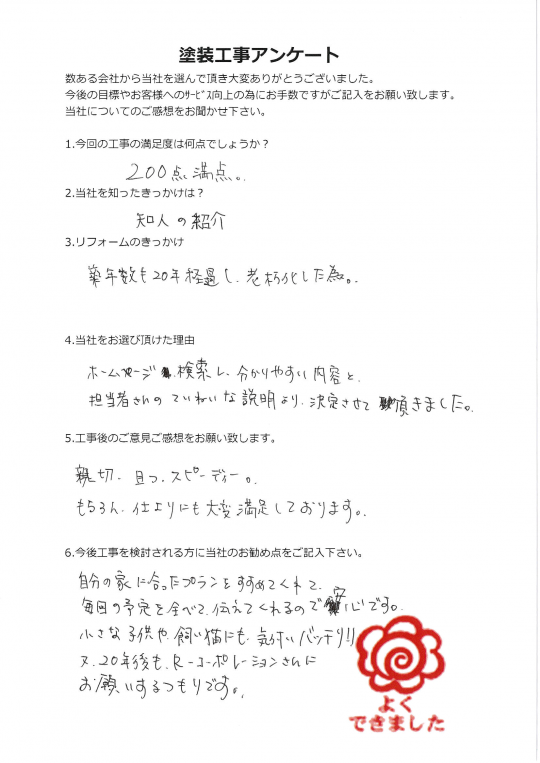 塗装工事アンケート
数ある会社から当社を選んで頂き大変ありがとうございました。
今後の目標やお客様へのｻｰﾋﾞｽ向上の為にお手数ですがご記入をお願い致します。
当社についてのご感想をお聞かせ下さい。
1.今回の工事の満足度は何点でしょうか？
200点満点。
2.当社を知ったきっかけは？
知人の紹介
3.リフォームのきっかけ
築年数も20年経過し、老朽化した為。
4.当社をお選び頂けた理由
ホームページ 検索し、分かりやすい内容と、
担当者さんのていねいな説明より、決定させて頂きました。
5.工事後のご意見ご感想をお願い致します。
親切、且つ、スピーディー。
もちろん、仕上りにも大変満足しております。
6.今後工事を検討される方に当社のお勧め点をご記入下さい。
自分の家に合ったプランをすすめてくれて、
毎回の予定を全べて、伝えてくれるので安心です。
小さな子供や、飼い猫にも、気付いバッチリ!!
又、20年後も、R-コーポレーションさんに
お願いするつもりです。
よく
できました